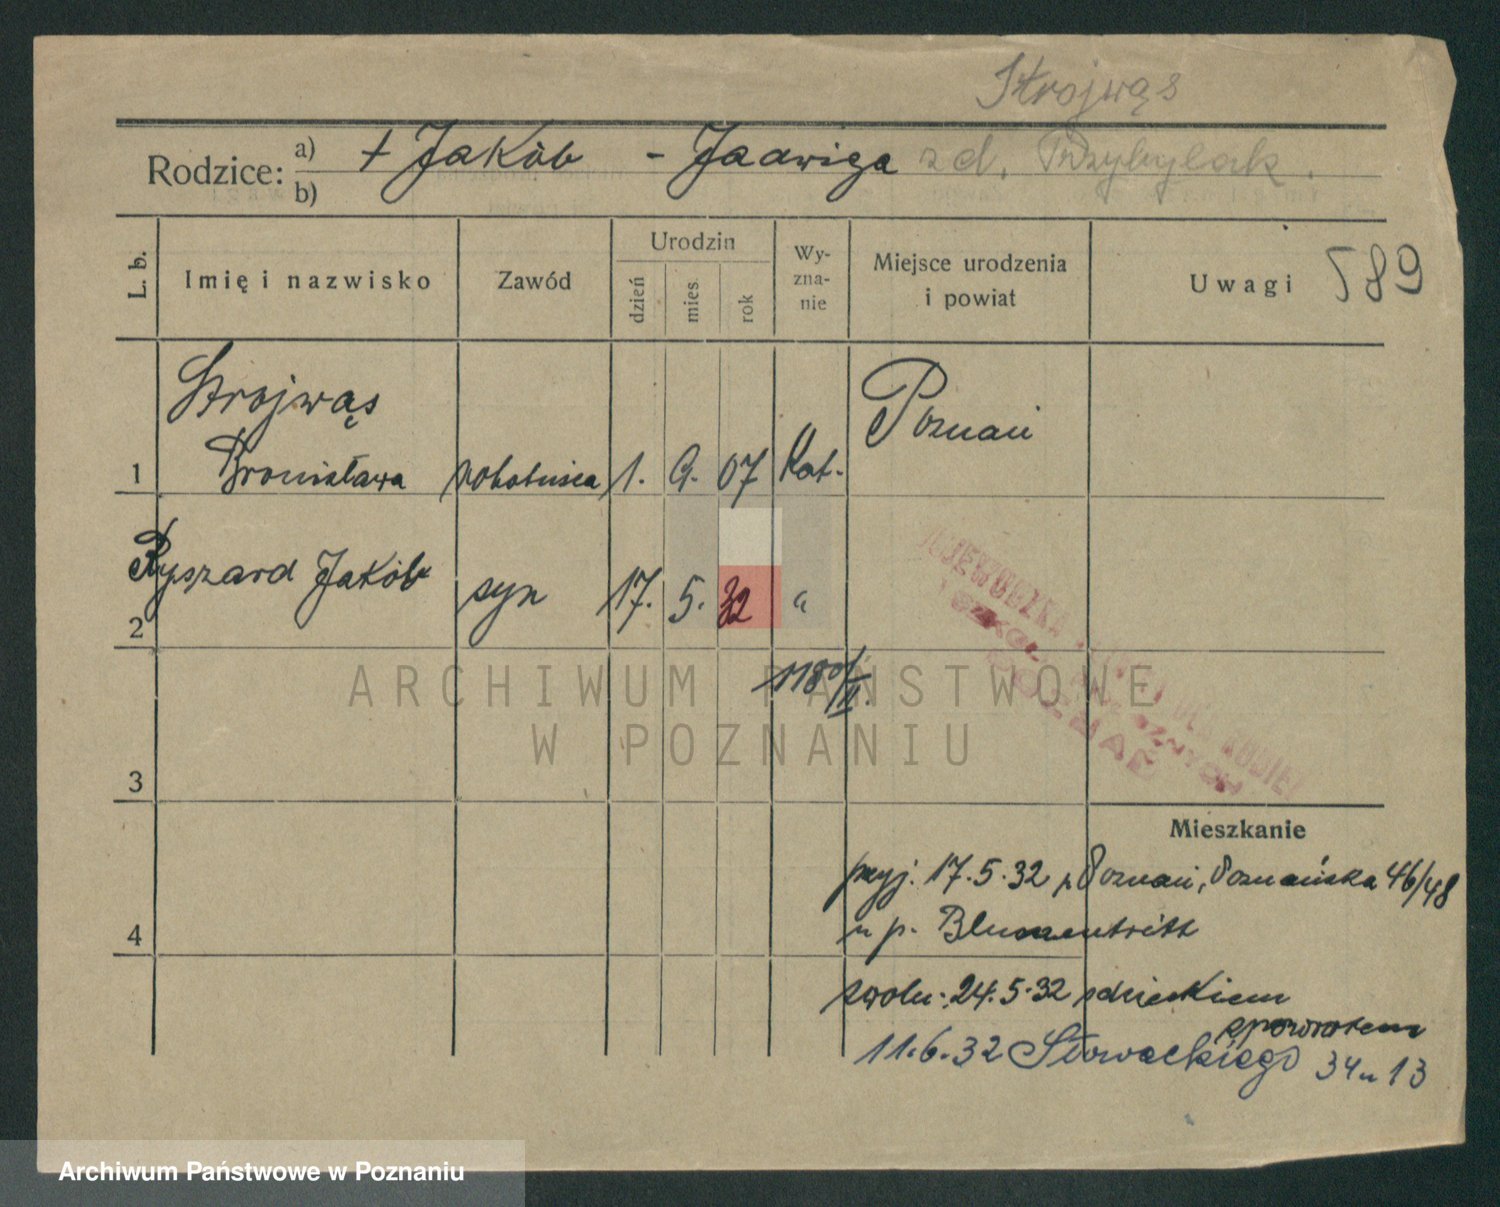 Strojwąs
Rodzice: a) + Jakób - Jadwiga zd. Przybylak.
b)
L. b. Imię i nazwisko Zawód Urodzin dzień mies. rok Wy-zna-nie Miejsce urodzenia i powiat Uwagi 589
Strojwąs Poznań
1 Bronisława robotnica 1. 9. 07 Kat.
Ryszard Jakób syn 17. 5. 32 "
2
1180/II.
WOJEWÓDZKA
POZNAŃ
ARCHIWUM PAŃSTWOWE
W POZNANIU
3
Mieszkanie
przyj. 17.5.32 z Poznań, Poznańska 46/48
4 u p. Blumentritt
zwoln. 24.5.32 z dzieckiem
zpowrotem
11.6.32 Słowackiego 34 u 13
Archiwum Państwowe w Poznaniu